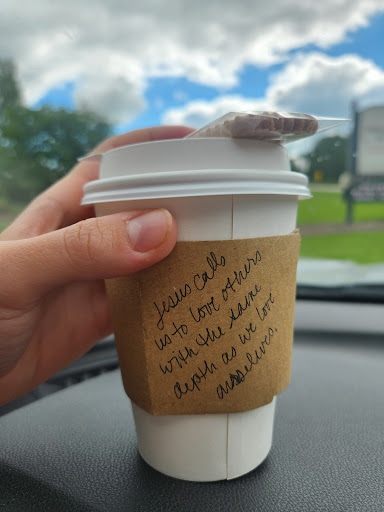 Jesus calls
us to love others
with the same
depth as we love
ourselves.